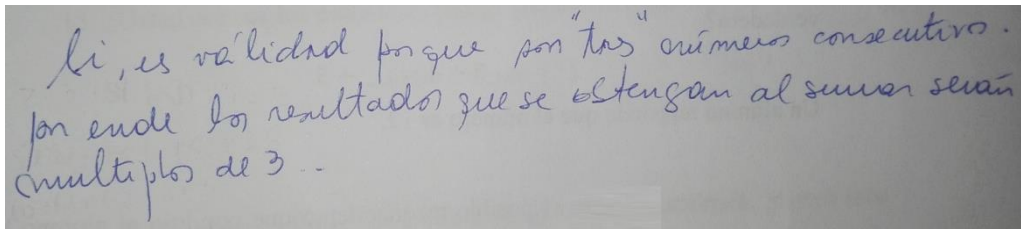 Si, es válidad porque son "tres" números consecutivos.
por ende los resultados que se ostengan al sumar serán
multiplos de 3..